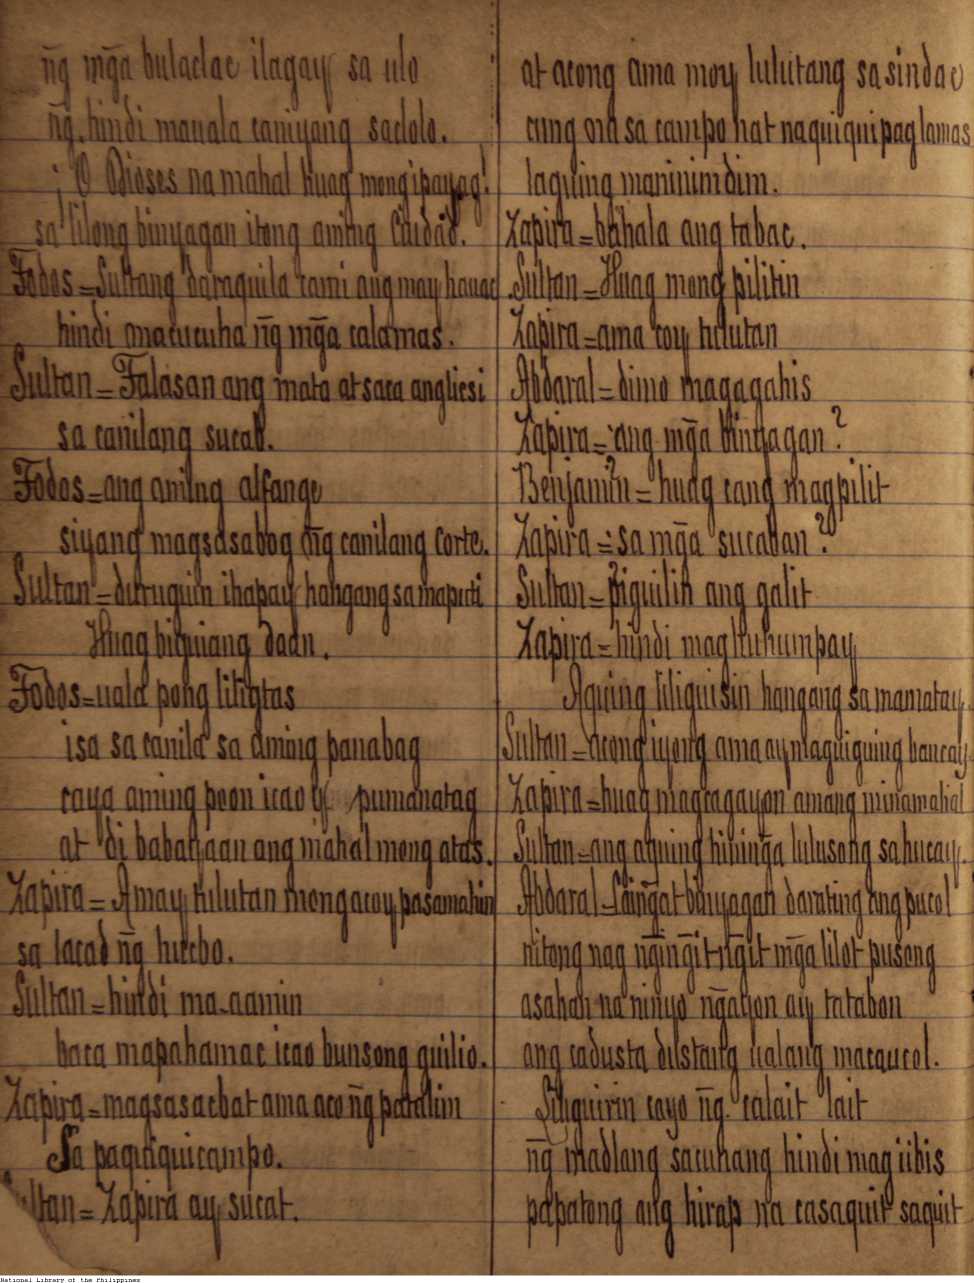 ñg mg̃a bulaclac ilagay sa ulo
ñg hindi mauala caniyang saclolo.
¡O Dioses na mahal huag mong ipayag!
sa lilong binyagan itong aming Ciudad.
Todos=Sultang daraquila cami ang may hauac
hindi macucuha ñg mg̃a calamas.
Sultan=Talasan ang mata at saca ang licsi
sa canilang sucab.
Todos=ang aming alfange
siyang magsasabog ñg canilang Corte.
Sultan=diruguin ihapay hangang sa maputi
Huag bigyiang daan.
Todos=uala pong ligtas
isa sa canila sa aming panabag
caya aming poon icao y pumanatag
at di babahaan ang mahal mong atas.
Zapira=Amay tulutan mong acoy pasamahin
sa lacad ñg hucbo.
Sultan=hindi ma-aamin
baca mapahamac icao bunsong guilio.
Zapira=magsasacbat ama aco ñg patalim
Sa paquiquicampo.
Sultan=Zapira ay sucat.
at acong ama moy lulutang sa sindac
cung ora sa campo hat naquiquipaglamas
laguing maninimdim.
Zapira=bahala ang tabac.
Sultan=Huag mong pilitin
Zapira=ama coy tulutan
Abdaral=dimo magagahis
Zapira=ang mg̃a binyagan?
Benjamin=huag cang magpilit
Zapira=sa mg̃a sucaban?
Sultan=Piguilin ang galit
Zapira=hindi maghuhumpay
Aquing liliguisin hangang sa mamatay
Sultan=acong iyong ama ay maguiguing bancay
Zapira=huag magcagayon amang minamahal
Sultan=ang aquing hining̃a lulusong sa hucay.
Abdaral=Saing̃at binyagan darating ang pucol
nitong nag ñging̃itñgit mg̃a lilot pusong
asahan na ninyo ñgayon ay tatabon
ang cadusta dustang ualang macaucol.
Siguirin cayo ñg calait lait
ñg madlang sacunang hindi mag iibis
papatong ang hirap na casaquit saquit
National Library of the Philippines